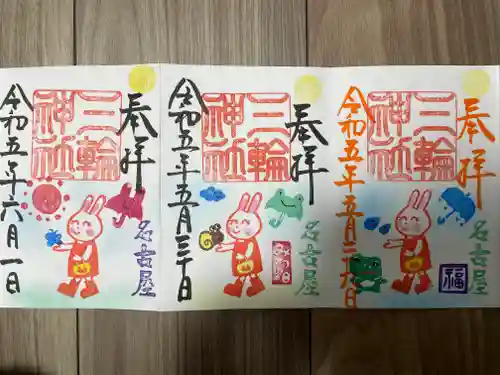 奉拝
三輪
神社
名古屋
福
令和五年五月二十六日
奉拝
三輪
神社
名古屋
令和五年五月三十日
奉拝
三輪
神社
名古屋
令和五年六月一日